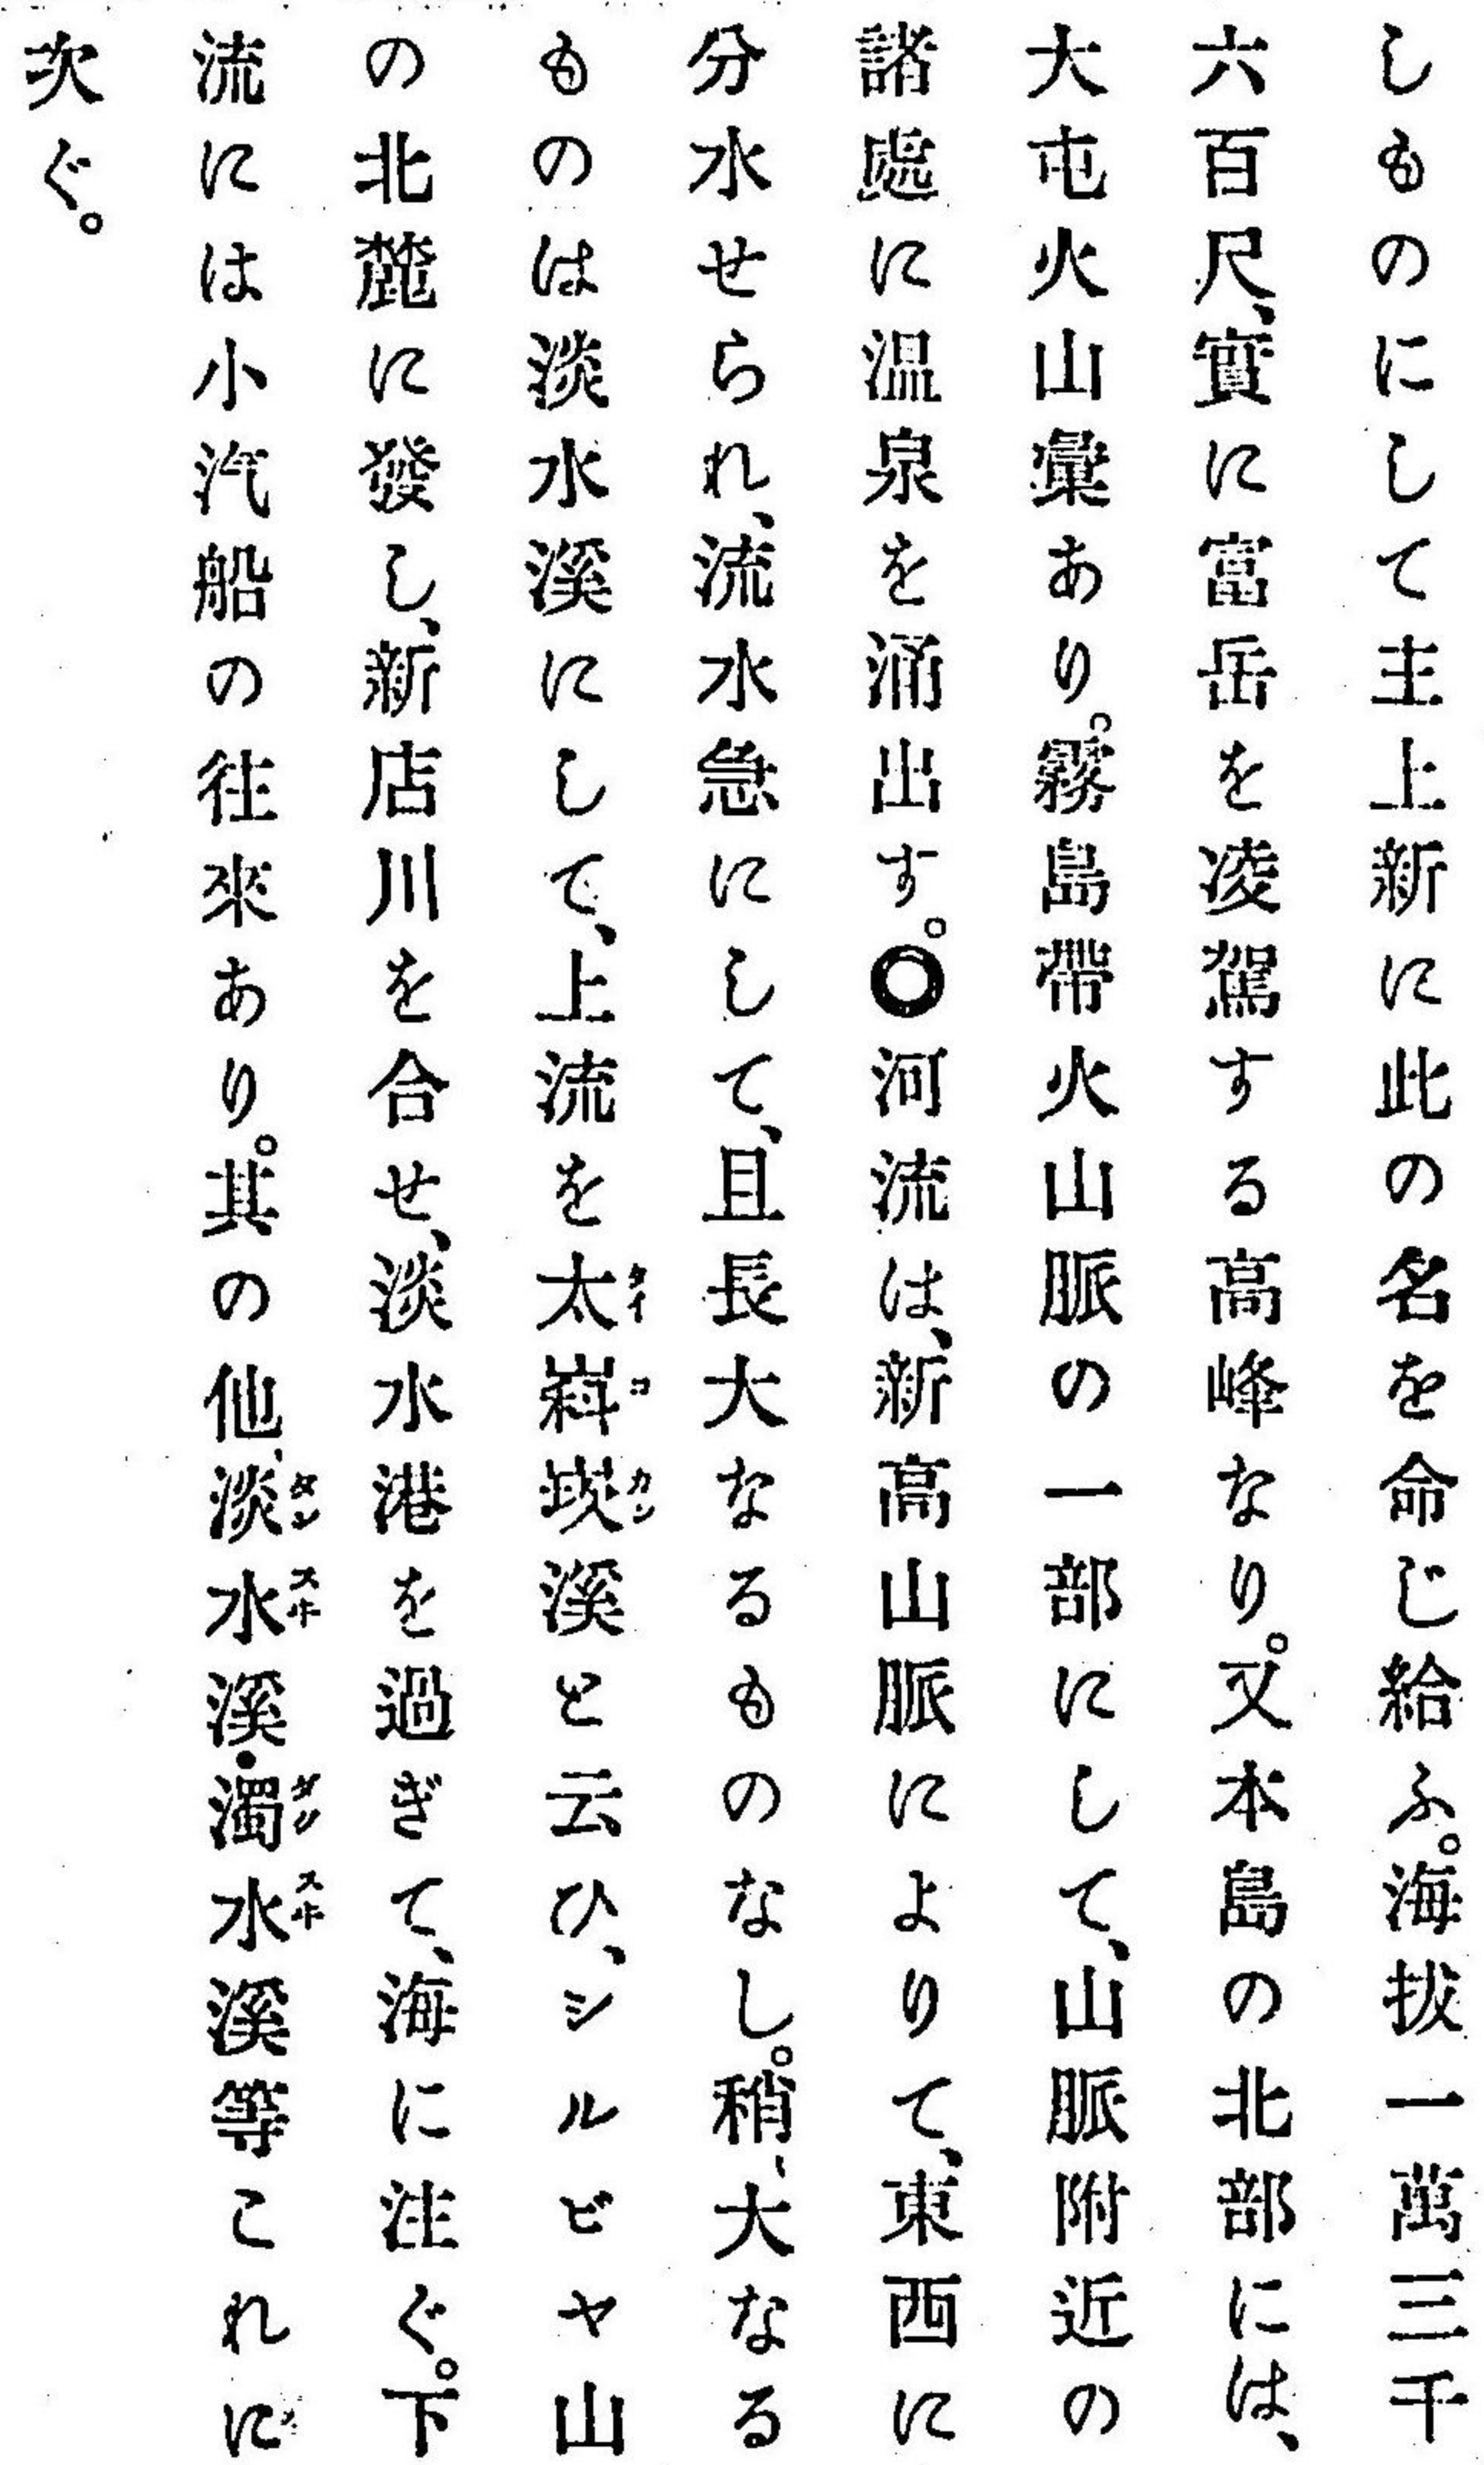 しものにして主上新に此の名を命じ給ふ。海拔一萬三千
六百尺、實に富岳を凌駕する高峰なり。又本島の北部には、
大屯火山彙あり。霧島帶火山脈の一部にして、山脈附近の
諸處に温泉を涌出す。〇河流は、新高山脈によりて、東西に
分水せられ、流水急にして、且長大なるものなし。稍〻大なる
ものは淡水溪にして、上流を太嵙崁溪と云ひ、シルビヤ山
の北麓に發し、新店川を合せ、淡水港を過ぎて、海に注ぐ。下
流には小汽船の往來あり。其の他、淡水溪・濁水溪等これに
次ぐ。